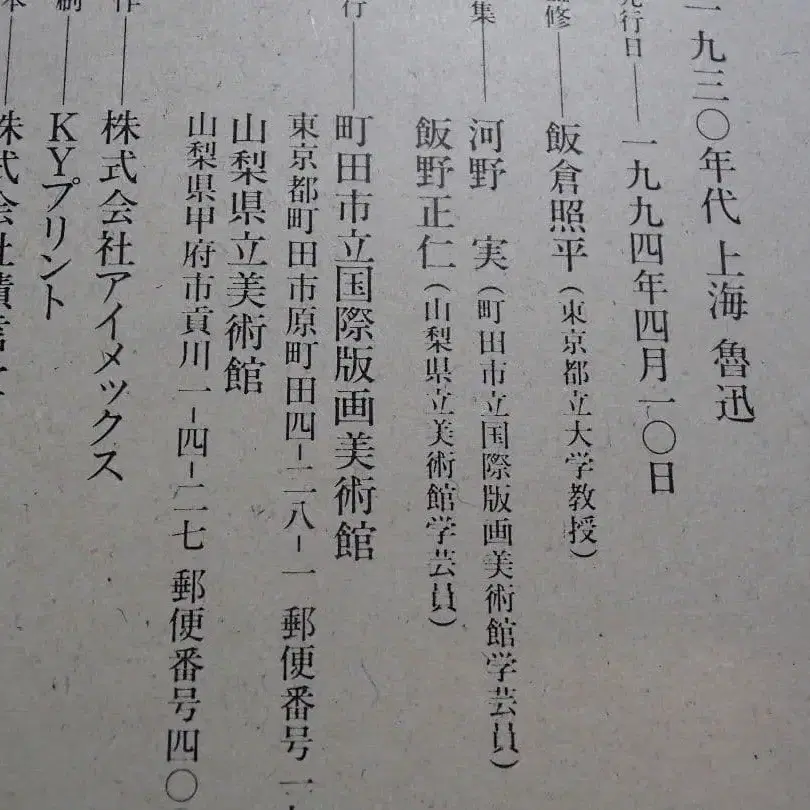 一九三〇年代 上海 魯迅
発行日――一九九四年四月一〇日
監修――飯倉照平(東京都立大学教授)
集――河野 実(町田市立国際版画美術館学芸員)
飯野正仁(山梨県立美術館学芸員)
行――町田市立国際版画美術館
東京都町田市原町田四-二八-一 郵便番号一
山梨県立美術館
山梨県甲府市貢川一-四-二七 郵便番号四〇
作――株式会社アイメックス
刷――KYプリント
本――株式会社積信